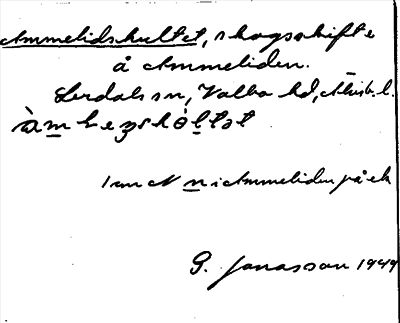 Ammelidskultet, skogsskifte
å Ammeliden.
Lerdals sn, Valbo hd, Älvsb. l.
1 mm N n i Ammeliden på ek
G. Jonasson 1949